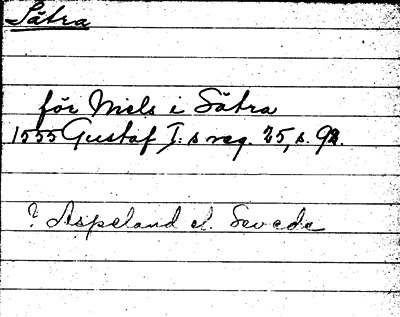 Sätra
för Niels i Sätra
1555 Gustaf I:s reg. 25, s. 92.
? Aspeland el. Sevede